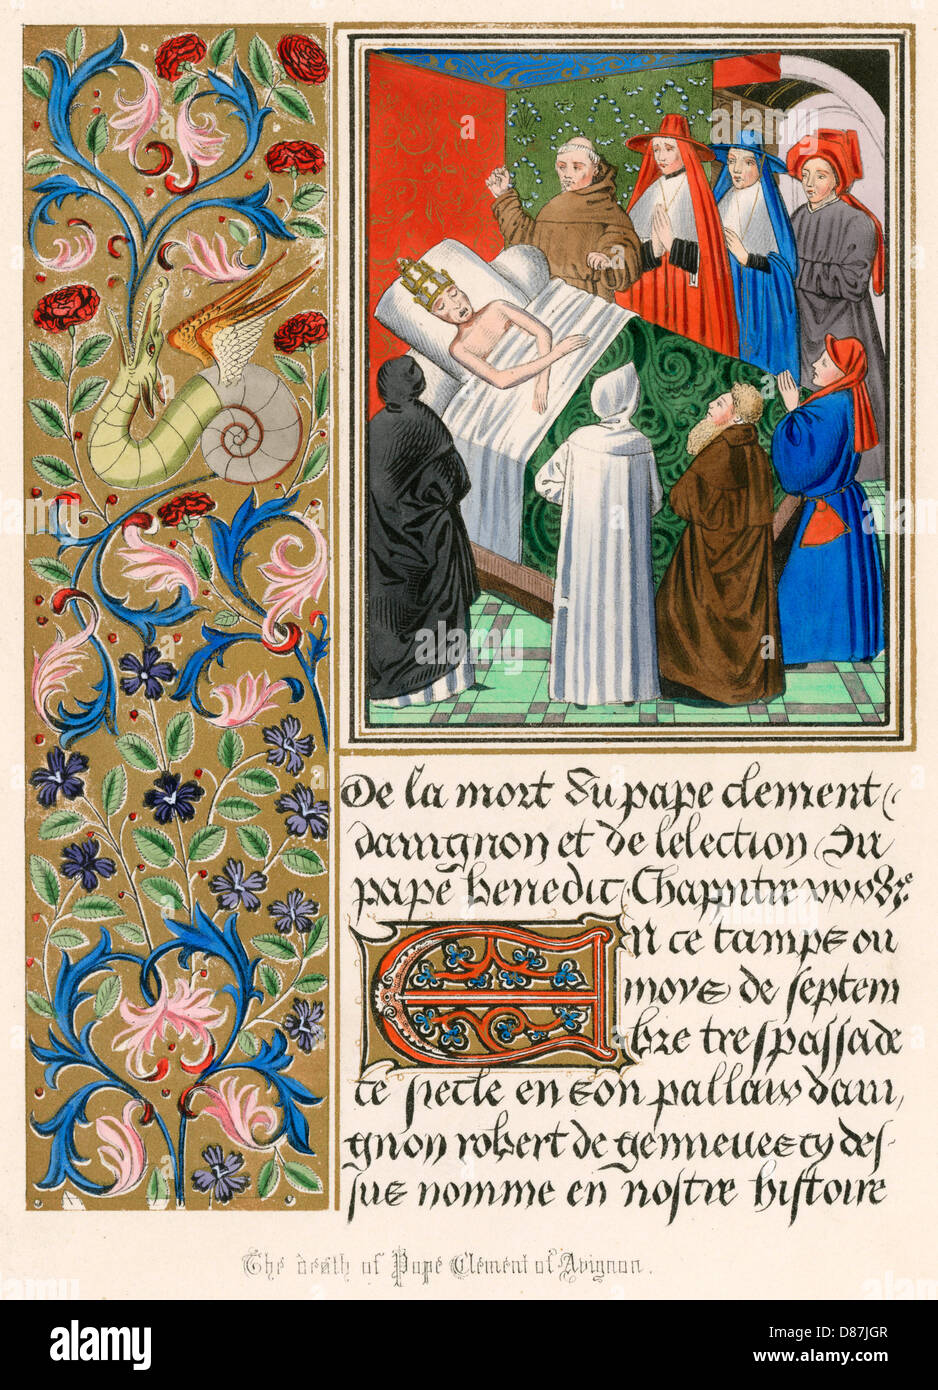 De la mort du pape clement
davignon et de lelection du
pape benedic Chapitre
En ce tamps ou
moys de septem
bre trespassa de
ce siecle en son pallais davi,
gnon robert de genneues cy des-
sus nomme en nostre histoire
The death of Pope Clement of Avignon.
alamy
Image ID: D87JGR
www.alamy.com